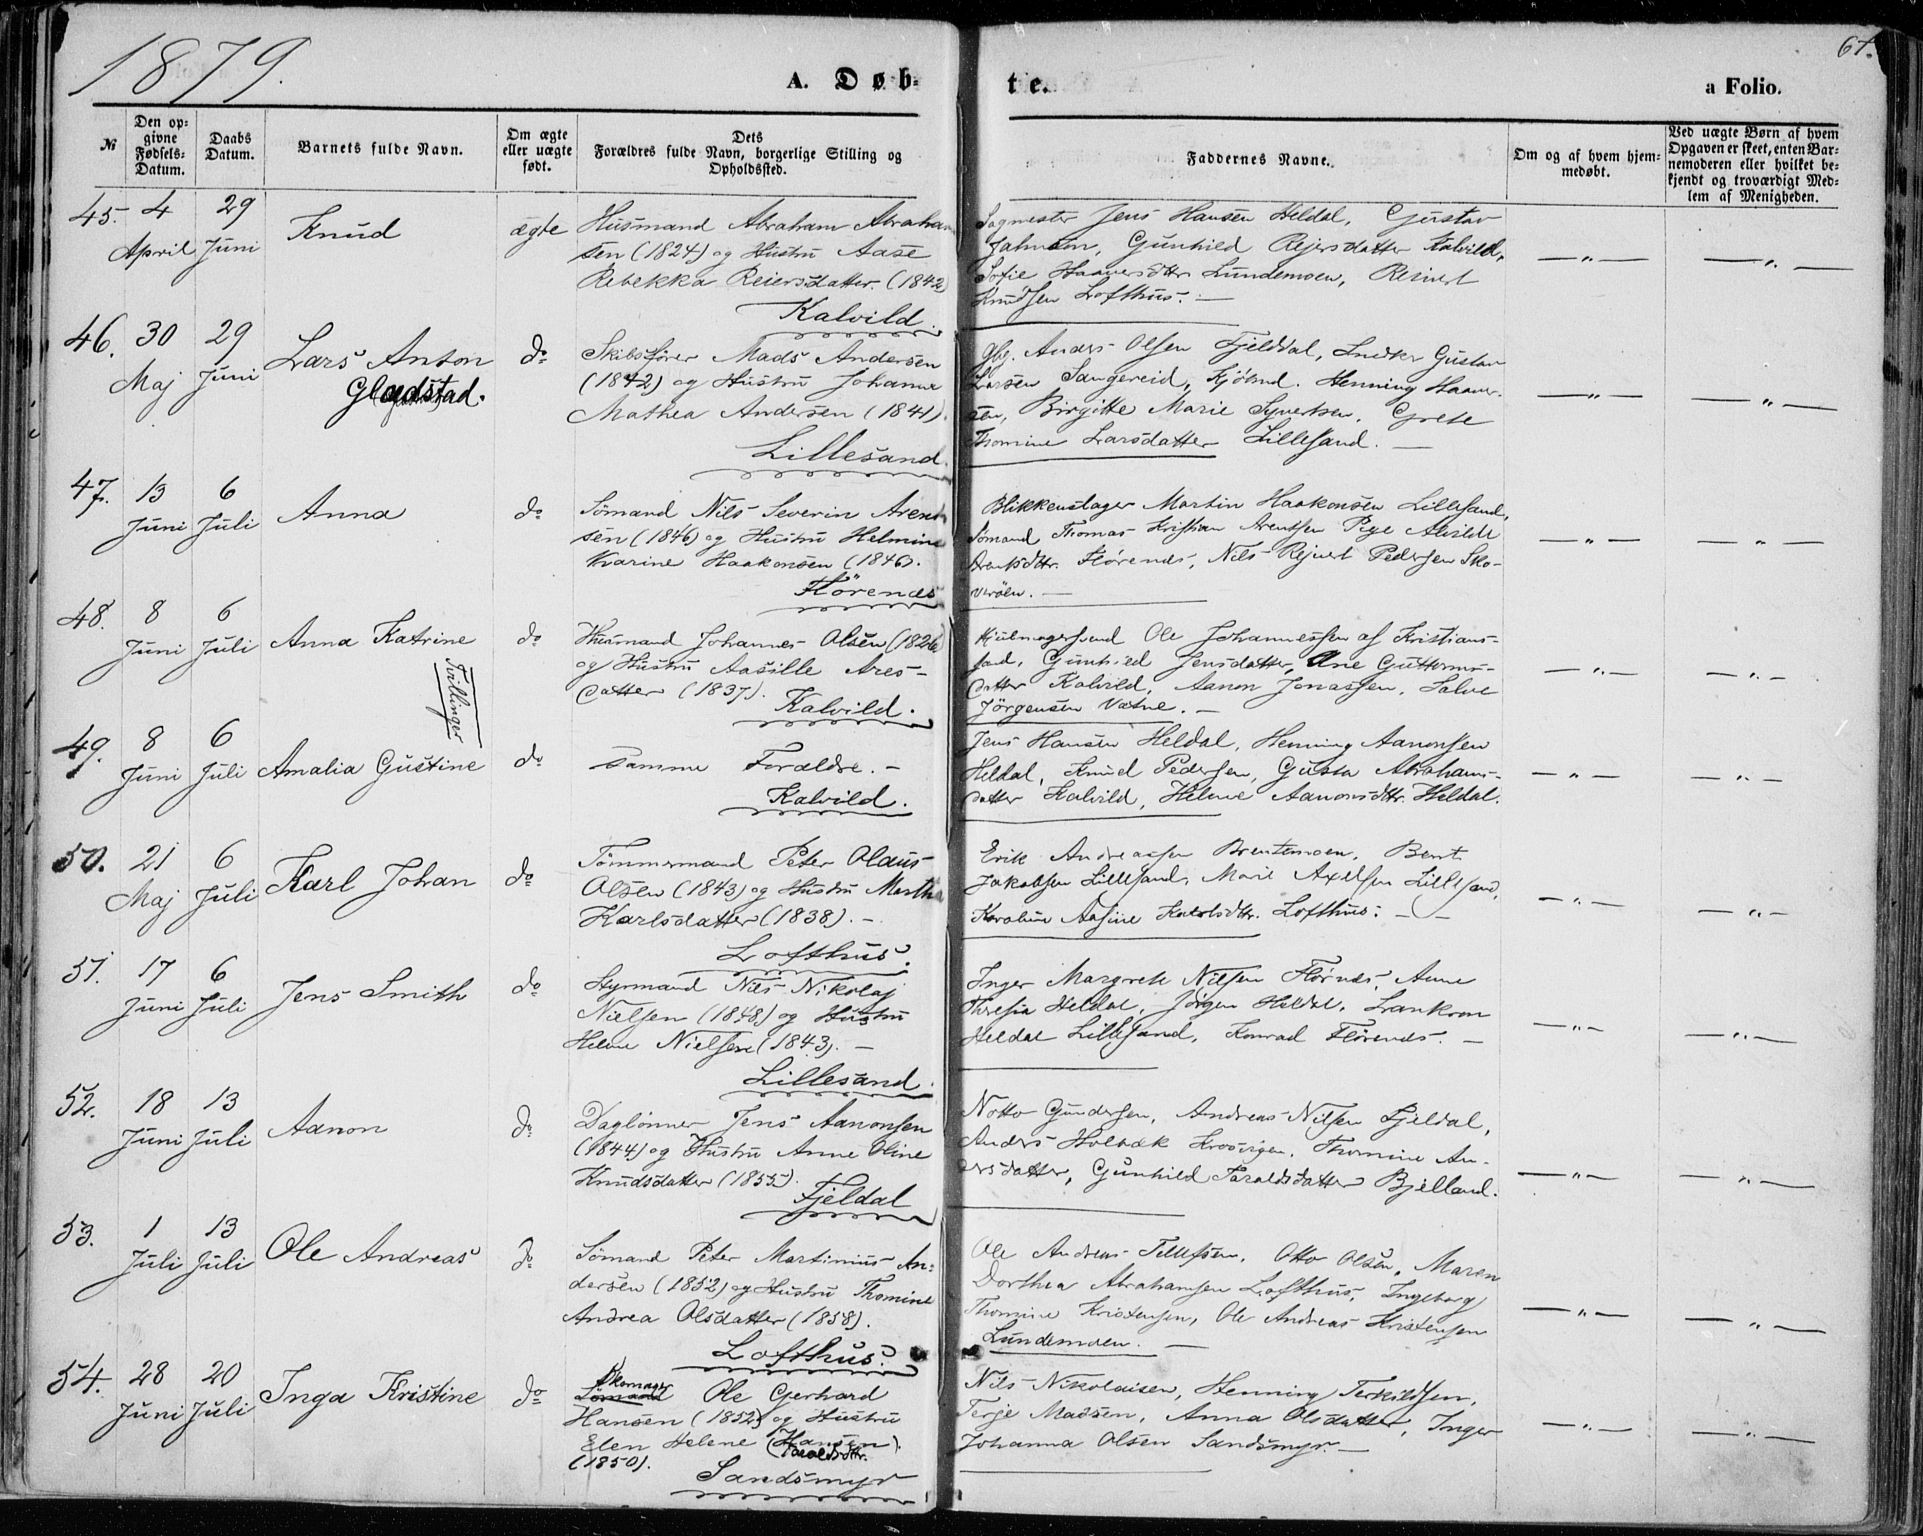 1879.
A. Døb-
te.
61.
a Folio.
№
Den op-
givne
Fødsels-
Datum.
Daabs
Datum.
Barnets fulde Navn.
Om ægte
eller uægte
født.
Dets
Forældres fulde Navn, borgerlige Stilling og
Opholdssted.
Faddernes Navne.
Om og af hvem hjem-
medøbt.
Ved uægte Børn af hvem
Opgaven er skeet, enten Bar-
nemoderen eller hvilket be-
kjendt og troværdigt Med-
lem af Menigheden.
45. 4 April 29 Juni Knud ægte
Husmand Abraham Abraham
sen (1824) og Hustru Aase
Rebekka Reiersdatter. (1842)
Kalvild.
Jens Hansen Heldal, Gustav
Gunhild Rejersdatter Kalvild,
Sofie Lundemoen, Reinert
Knudsen Lofthus. —
— „ — — „ —
46. 30 Maj 29 Juni Lars Anton
Gladstad.
do
Skibsfører Mads Andersen
(1842) og Hustru Johanne
Mathea Andersen (1841).
Lillesand.
Gbg. Anders Olsen Fjeldal, Gustav
Larsen Sangereid, Henning Haaver-
sen, Birgitte Marie Syvertsen, Grete
Thomine Larsdatter Lillesand. —
— „ — — „ —
47. 13 Juni 6 Juli Anna do
Sömand Nils Severin Arent
sen (1846) og Hustru Helmine
Karine Haakonsen (1846).
Flörenes
Blikkenslager Martin Haakonsen Lillesand,
Sömand Thomas Kristian Arentsen Pige Alvilde
Arentsdttr. Flörenes, Nils Rejert Pedersen Sko-
veröen. —
— „ — — „ —
48. 8 Juni 6 Juli Anna Katrine do
Tvillinger
Husmand Johannes Olsen (1826)
og Hustru Aasille Ares-
datter (1837).
Kalvild.
Hjulmagersvend Ole Johannessen af Kristians-
sand, Gunhild Jensdatter, Ane Guttorms-
datter Kalvild, Aanon Jonassen, Salve
Jörgensen Vatne. —
— „ — — „ —
49. 8 Juni 6 Juli Amalia Gustine do
Samme Forældre. —
Kalvild.
Jens Hansen Heldal, Henning Aanonsen
Heldal, Knud Pedersen, Gusta Abrahams-
datter Kalvild, Helene Aanonsdttr. Heldal.
— „ — — „ —
50. 21 Maj 6 Juli Karl Johan do
Tömmermand Peter Olaus
Olsen (1843) og Hustru Martha
Karlsdatter (1838). —
Lofthus.
Erik Andreassen Brentemoen, Bent
Jakobsen Lillesand, Marie Axelsen Lillesand,
Karoline Aasine Karlsdttr. Lofthus. — —
— „ — — „ —
51. 17 Juni 6 Juli Jens Smith do
Styrmand Nils Nikolaj
Nielsen (1848) og Hustru
Helene Nielsen (1843). —
Lillesand.
Inger Margrete Nilsen Flörnes, Anne
Thresia Heldal, Jörgen Heldal,
Heldal Lillesand, Konrad Flörenes. —
— „ — — „ —
52. 18 Juni 13 Juli Aanon do
Daglönner Jens Aanonsen
(1844) og Hustru Anne Oline
Knudsdatter (1855).
Fjeldal
Notto Gundersen, Andreas Nilsen Fjeldal,
Anders Holbæk Thomine An-
dersdatter, Gunhild Taraldsdatter Bjelland.
— „ — — „ —
53. 1 Juli 13 Juli Ole Andreas do
Sömand Peter Martinius An-
dersen (1852) og Hustru Thomine
Andrea Olsdatter (1858).
Lofthus.
Ole Andreas Tellefsen, Otto Olsen, Maren
Dorthea Abrahamsen Lofthus, Ingeborg
Thomine Kristensen, Ole Andreas Kristensen
Lundemoen. —
— „ — — „ —
54. 28 Juni 20 Juli Inga Kristine do
Skomager
Sömand Ole Gerhard
Hansen (1852) og Hustru
Elen Helene (Hansen)
(1850). Taraldsdttr.
Sandsmyr
Nils Nikolaisen, Henning Terkildsen,
Terje Madsen, Anna Olsdatter, Inger
Johanna Olsen Sandsmyr —
— „ — — „ —